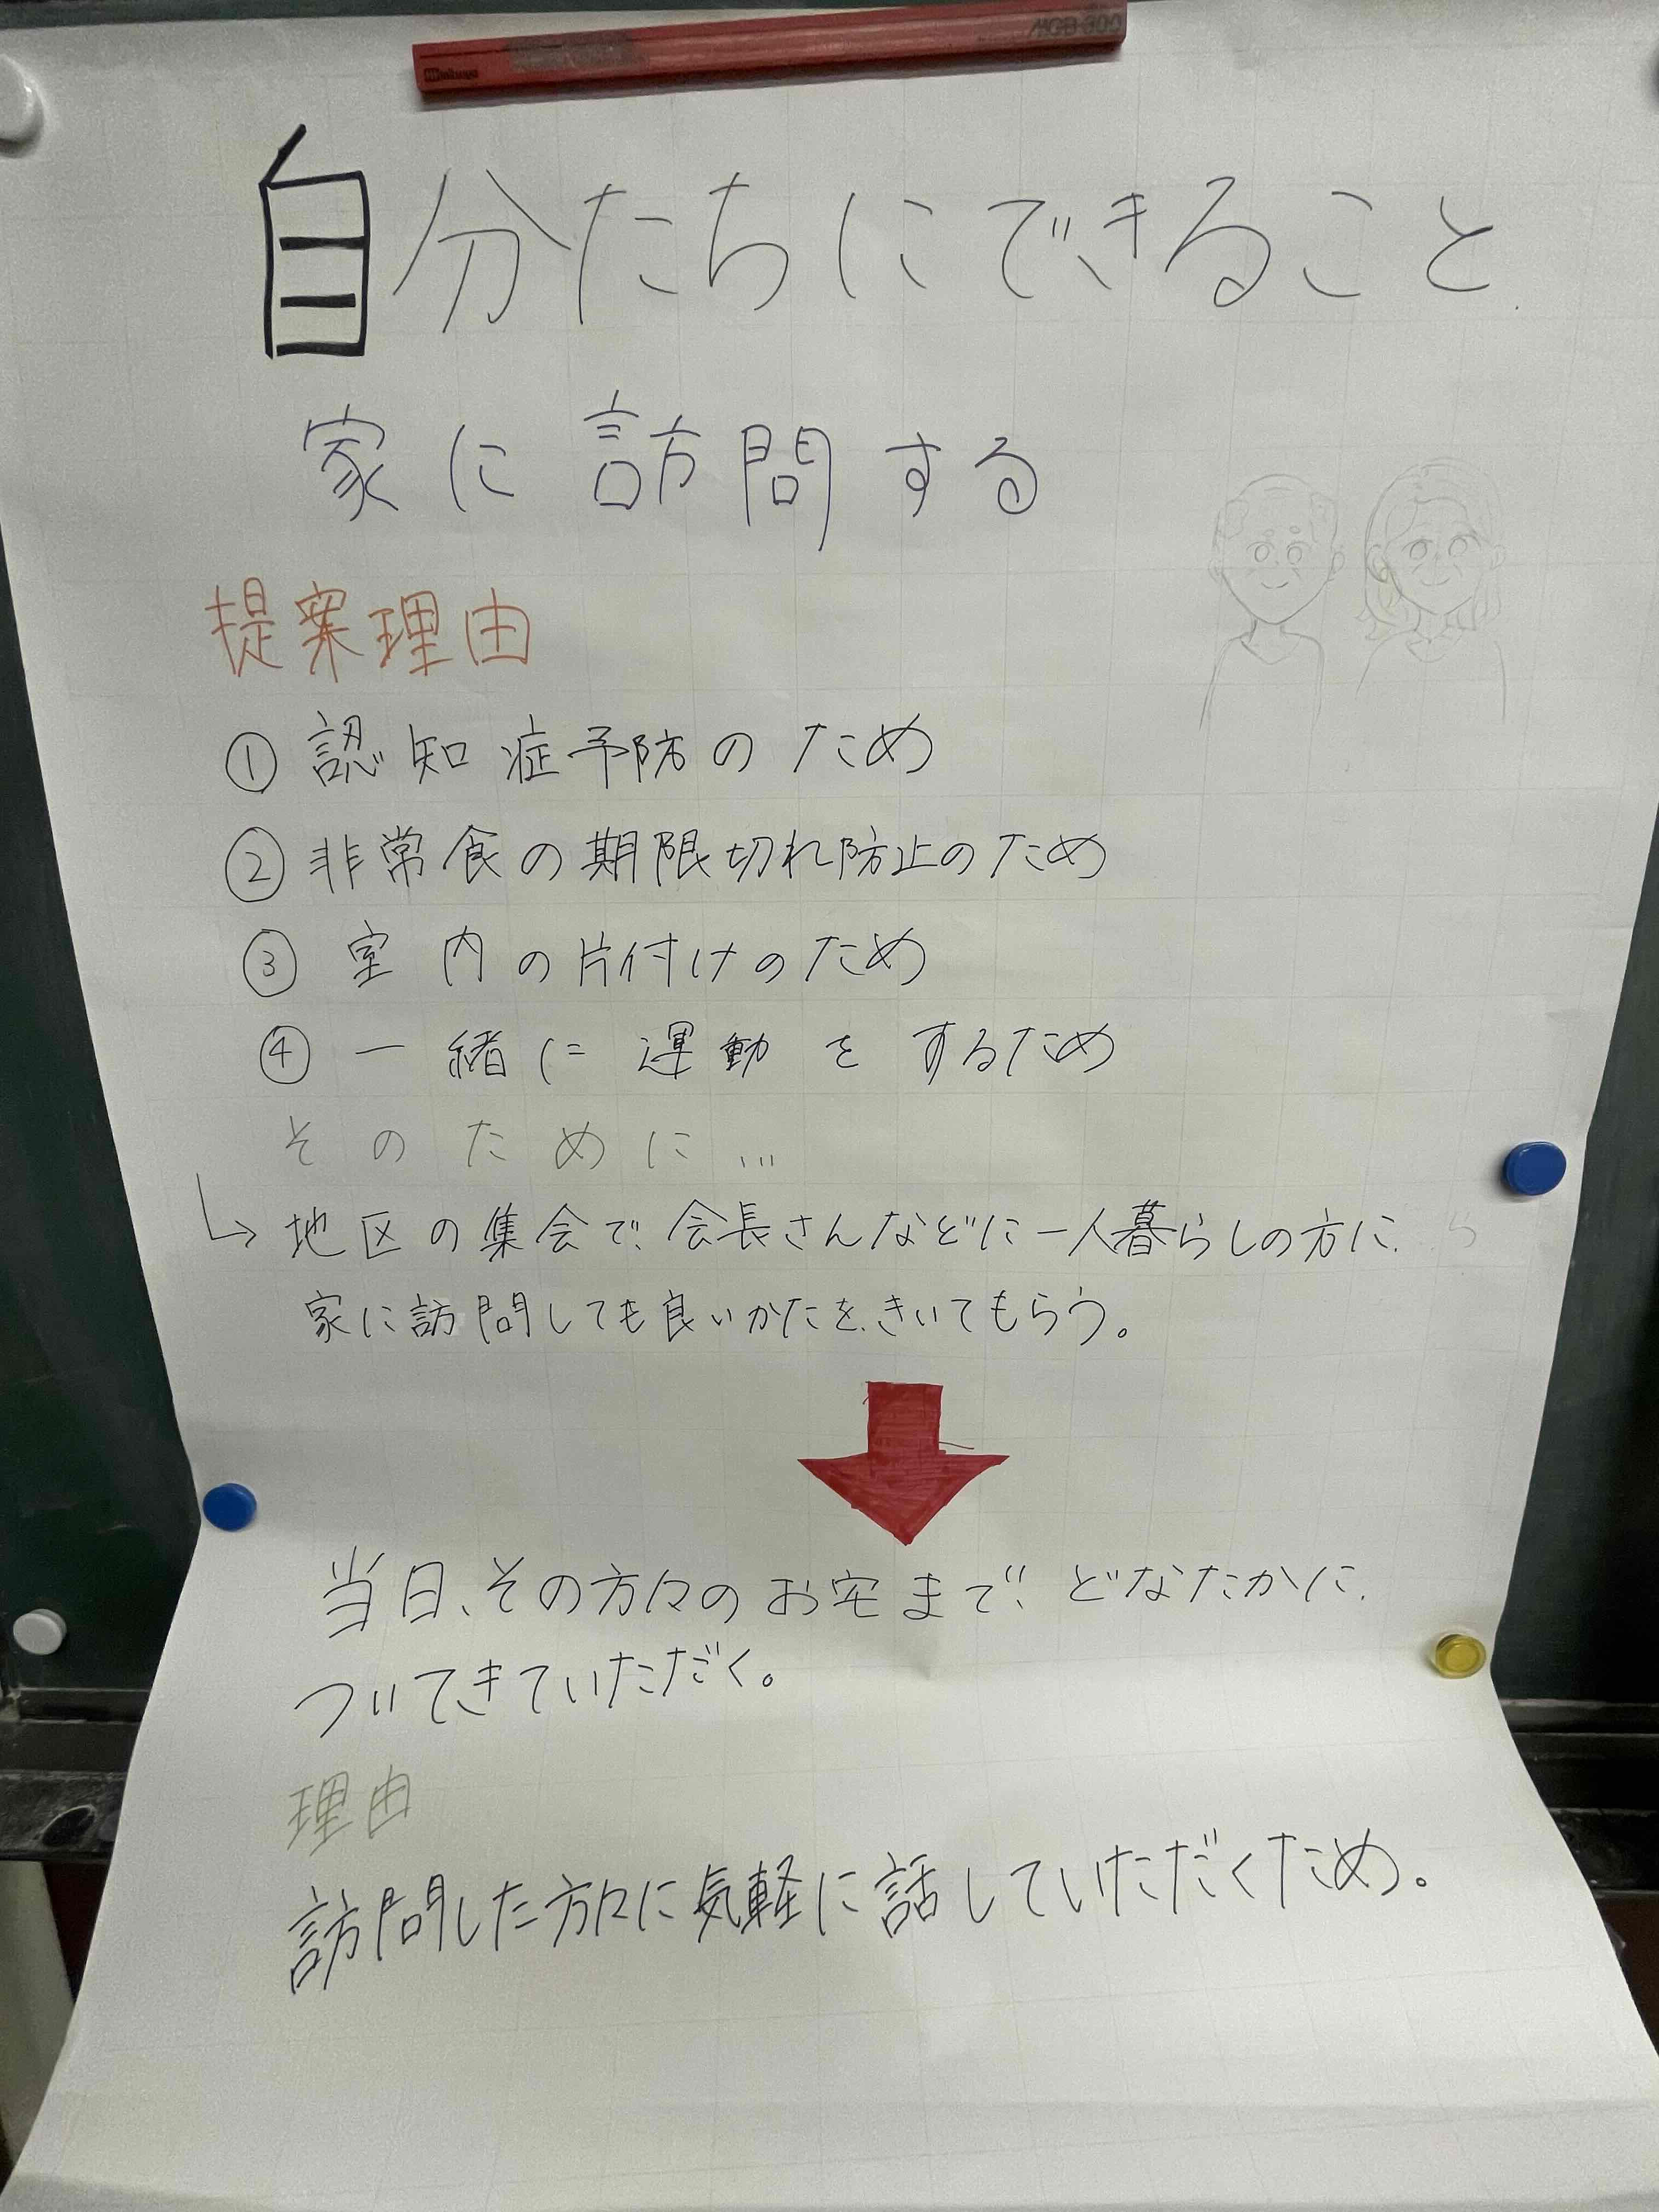 MGB-300
自分たちにできること
家に訪問する
提案理由
① 認知症予防のため
② 非常食の期限切れ防止のため
③ 室内の片付けのため
④ 一緒に運動をするため
そのために…
↳ 地区の集会で、会長さんなどに一人暮らしの方に、
家に訪問しても良いかたを、きいてもらう。
当日、その方々のお宅まで、どなたかに、
ついてきていただく。
理由
訪問した方々に気軽に話していただくため。